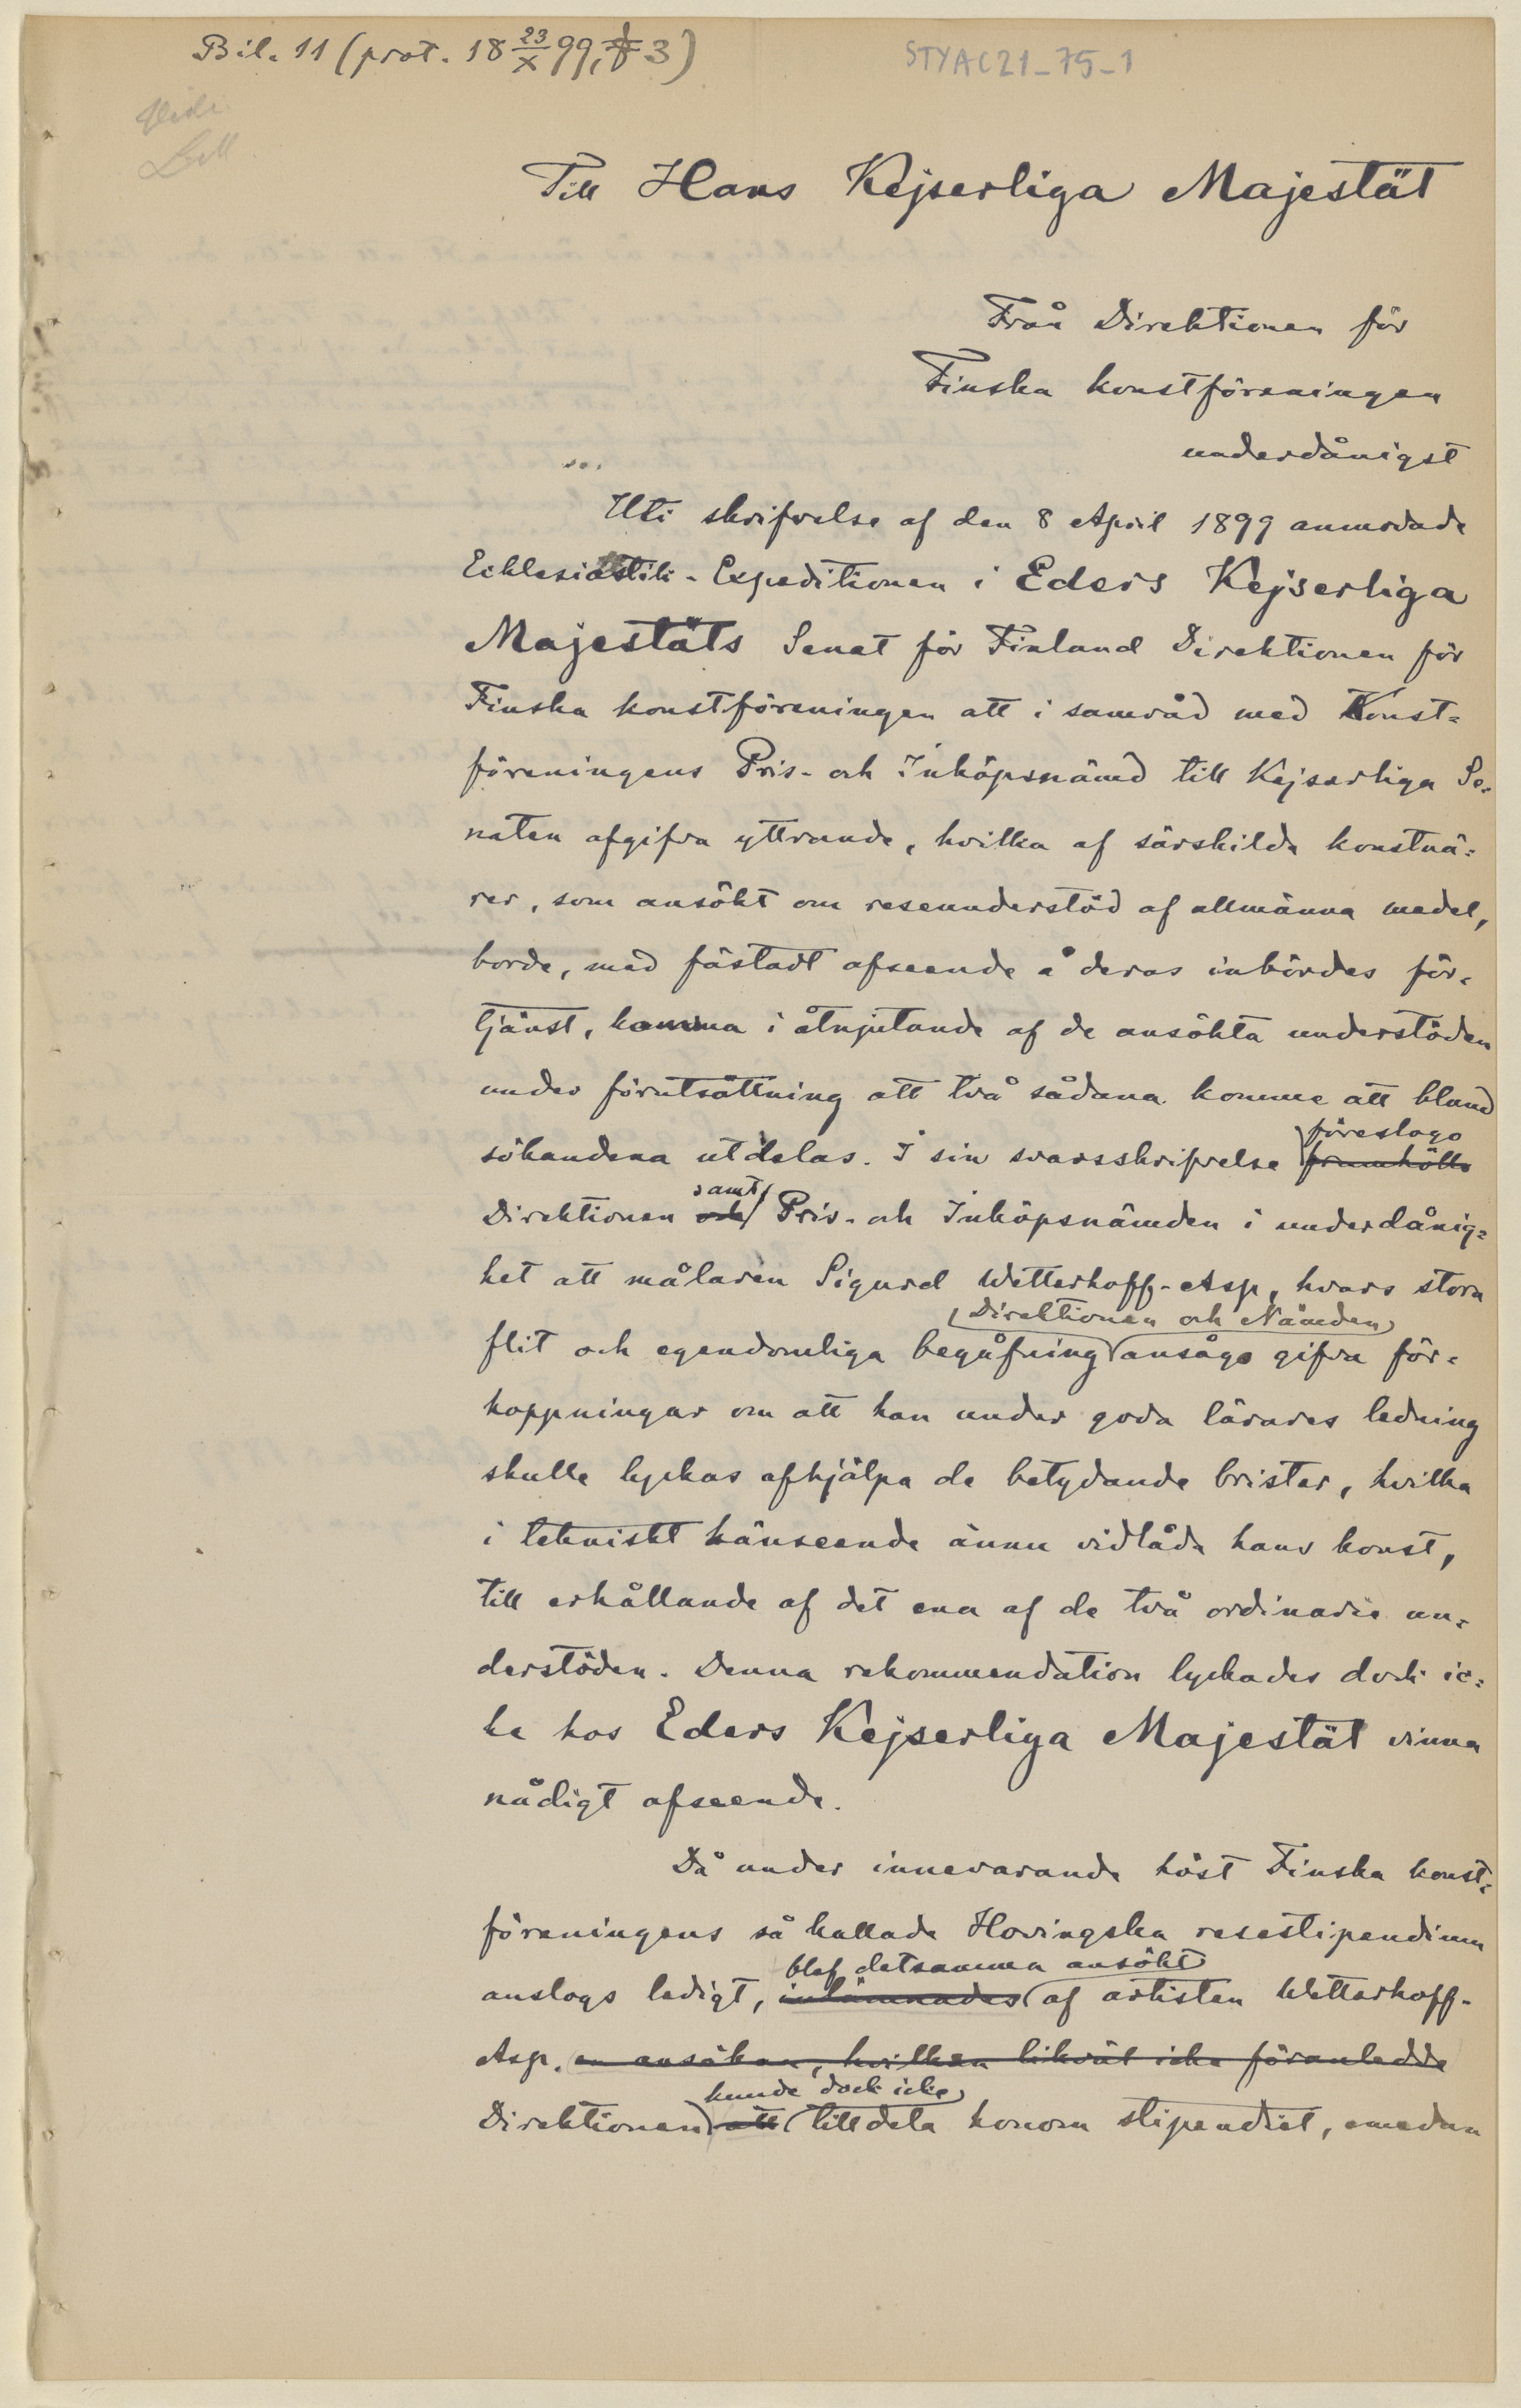 Bil. 11 (prot. 18 23/X 99, § 3)
STYAC21_75_1
Till Hans Kejserliga Majestät
Från Direktionen för
Finska konstföreningen
underdånigst
Uti skrifvelse af den 8 April 1899 anmodade
Ecklesiastik-Expeditionen i Eders Kejserliga
Majestäts Senat för Finland Direktionen för
Finska konstföreningen att i samråd med Konst=
föreningens Pris- och Inköpsnämd till Kejserliga Se=
naten afgifva yttrande, hvilka af särskilda konstnä=
rer, som ansökt om reseunderstöd af allmänna medel,
borde, med fästadt afseende å deras inbördes för=
tjänst, komma i åtnjutande af de ansökta understöden
under förutsättning att två sådana komme att bland
föreslogo
sökandena utdelas. I sin svarsskrifvelse framhölls
samt
Direktionen och Pris- och Inköpsnämden i underdånig=
het att målaren Sigurd Wetterhoff-Asp, hvars stora
Direktionen och Nämden
flit och egendomliga begåfning ansågs gifva för=
hoppningar om att han under goda lärares ledning
skulle lyckas afhjälpa de betydande brister, hvilka
i tekniskt hänseende ännu vidlåda hans konst,
till erhållande af det ena af de två ordinarie un=
derstöden. Denna rekommendation lyckades dock ic=
ke hos Eders Kejserliga Majestät vinna
nådigt afseende.
Då under innevarande höst Finska konst=
föreningens så kallade Hovingska resestipendium
blef detsamma ansökt
anslogs ledigt, inlämnades af artisten Wetterhoff-
Asp. en ansökan, hvilken likväl icke föranledde
kunde dock icke
Direktionen att tilldela honom stipendiet, emedan